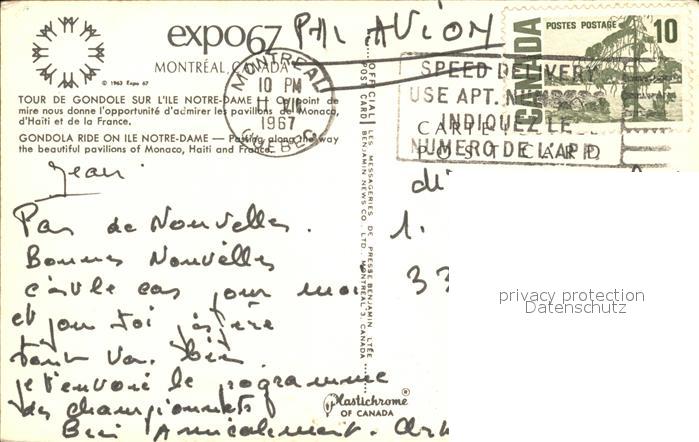 expo67
MONTRÉAL, CANADA
© 1963 Expo 67
PAR AVION
CANADA
POSTES POSTAGE
10
MONTREAL
10 PM
1967
QUEBEC
SPEED DELIVERY
USE APT. NUMBERS
INDIQUEZ LE
NUMERO DE L'APP.
CARTE
POST CARD
TOUR DE GONDOLE SUR L'ILE NOTRE-DAME — Quoi de
mire nous donne l'opportunité d'admirer les pavillons de Monaco,
d'Haïti et de la France.
GONDOLA RIDE ON ILE NOTRE-DAME — Passing along the way
the beautiful pavilions of Monaco, Haiti and France.
OFFICIAL LES MESSAGERIES DE PRESSE BENJAMIN LTÉE
POST CARD BENJAMIN NEWS CO., LTD., MONTREAL 3, CANADA
Jean
Pas de Nouvelles.
Bonnes Nouvelles
c'est le cas pour moi
et pour toi j'espère
tout va bien
je t'envoie le programme
des championnats
Bien Amicalement.
1.
33
Plastichrome®
OF CANADA
privacy protection
Datenschutz